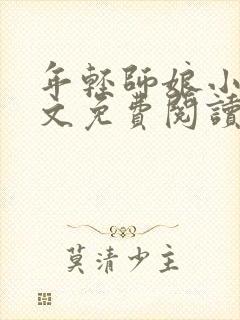 年輕師娘小
文免費閱讀
莫清少主